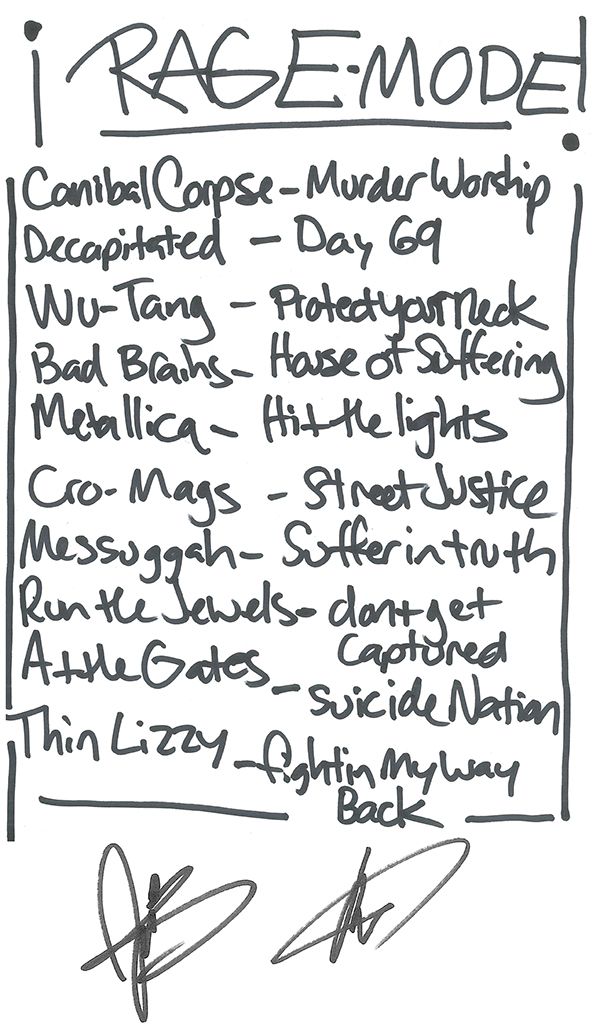 ¡ RAGE-MODE!
Canibal Corpse - Murder Worship
Decapitated - Day 69
Wu-Tang - Protect your neck
Bad Brains - House of Suffering
Metallica - Hit the lights
Cro-Mags - Street Justice
Messuggah - Suffer in truth
Run the Jewels - dont get
Captured
At the Gates - suicide Nation
Thin Lizzy - fightin My Way
Back